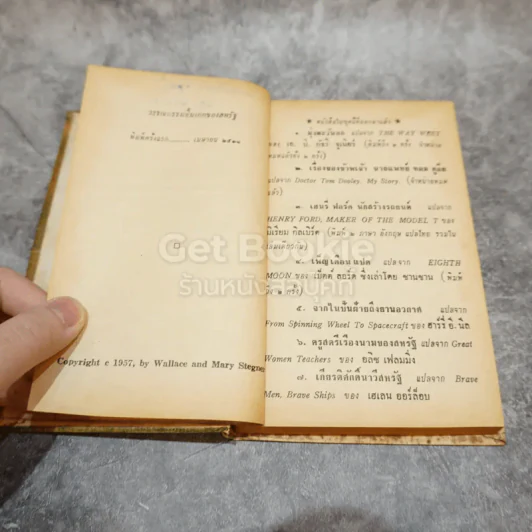 วรรณกรรมชิ้นเอกของสหรัฐ
พิมพ์ครั้งแรก........เมษายน ๒๕๑๑
Copyright c 1957, by Wallace and Mary Stegne
หนังสือในชุดนี้ที่ออกมาแล้ว
๑. มุ่งตะวันตก แปลจาก THE WAY WEST
ของ เอ. บี. กัธรี
๒. เรื่องของข้าพเจ้า นายแพทย์ ทอม ดูลีย์
แปลจาก Doctor Tom Dooley, My Story.
๓. เฮนรี่ ฟอร์ด นักสร้างรถยนต์ แปลจาก
HENRY FORD, MAKER OF THE MODEL T ของ
มิเรียม กิลเบิร์ต (พิมพ์ ๒ ภาษา อังกฤษ แปลไทย รวมใน
เล่มเดียวกัน)
๔. เพ็ญเดือนแปด แปลจาก EIGHTH
MOON ของ เบ็ตต์ ลอร์ด ซึ่งเล่าโดย ซานซาน (พิมพ์
ครั้ง ๒ ครั้ง)
๕. จากไนปั่นด้ายถึงยานอวกาศ แปลจาก
From Spinning Wheel To Spacecraft ของ ฮาร์รี่ อี. นีล
๖. ครูสตรีเรืองนามของสหรัฐ แปลจาก Great
Women Teachers ของ อลิซ เฟลมมิ่ง
๗. เกียรติศักดิ์นาวีสหรัฐ แปลจาก Brave
Men, Brave Ships ของ เฮเลน ออร์ล็อบ
Get Bookie
ร้านหนังสือบุ๊คกี้